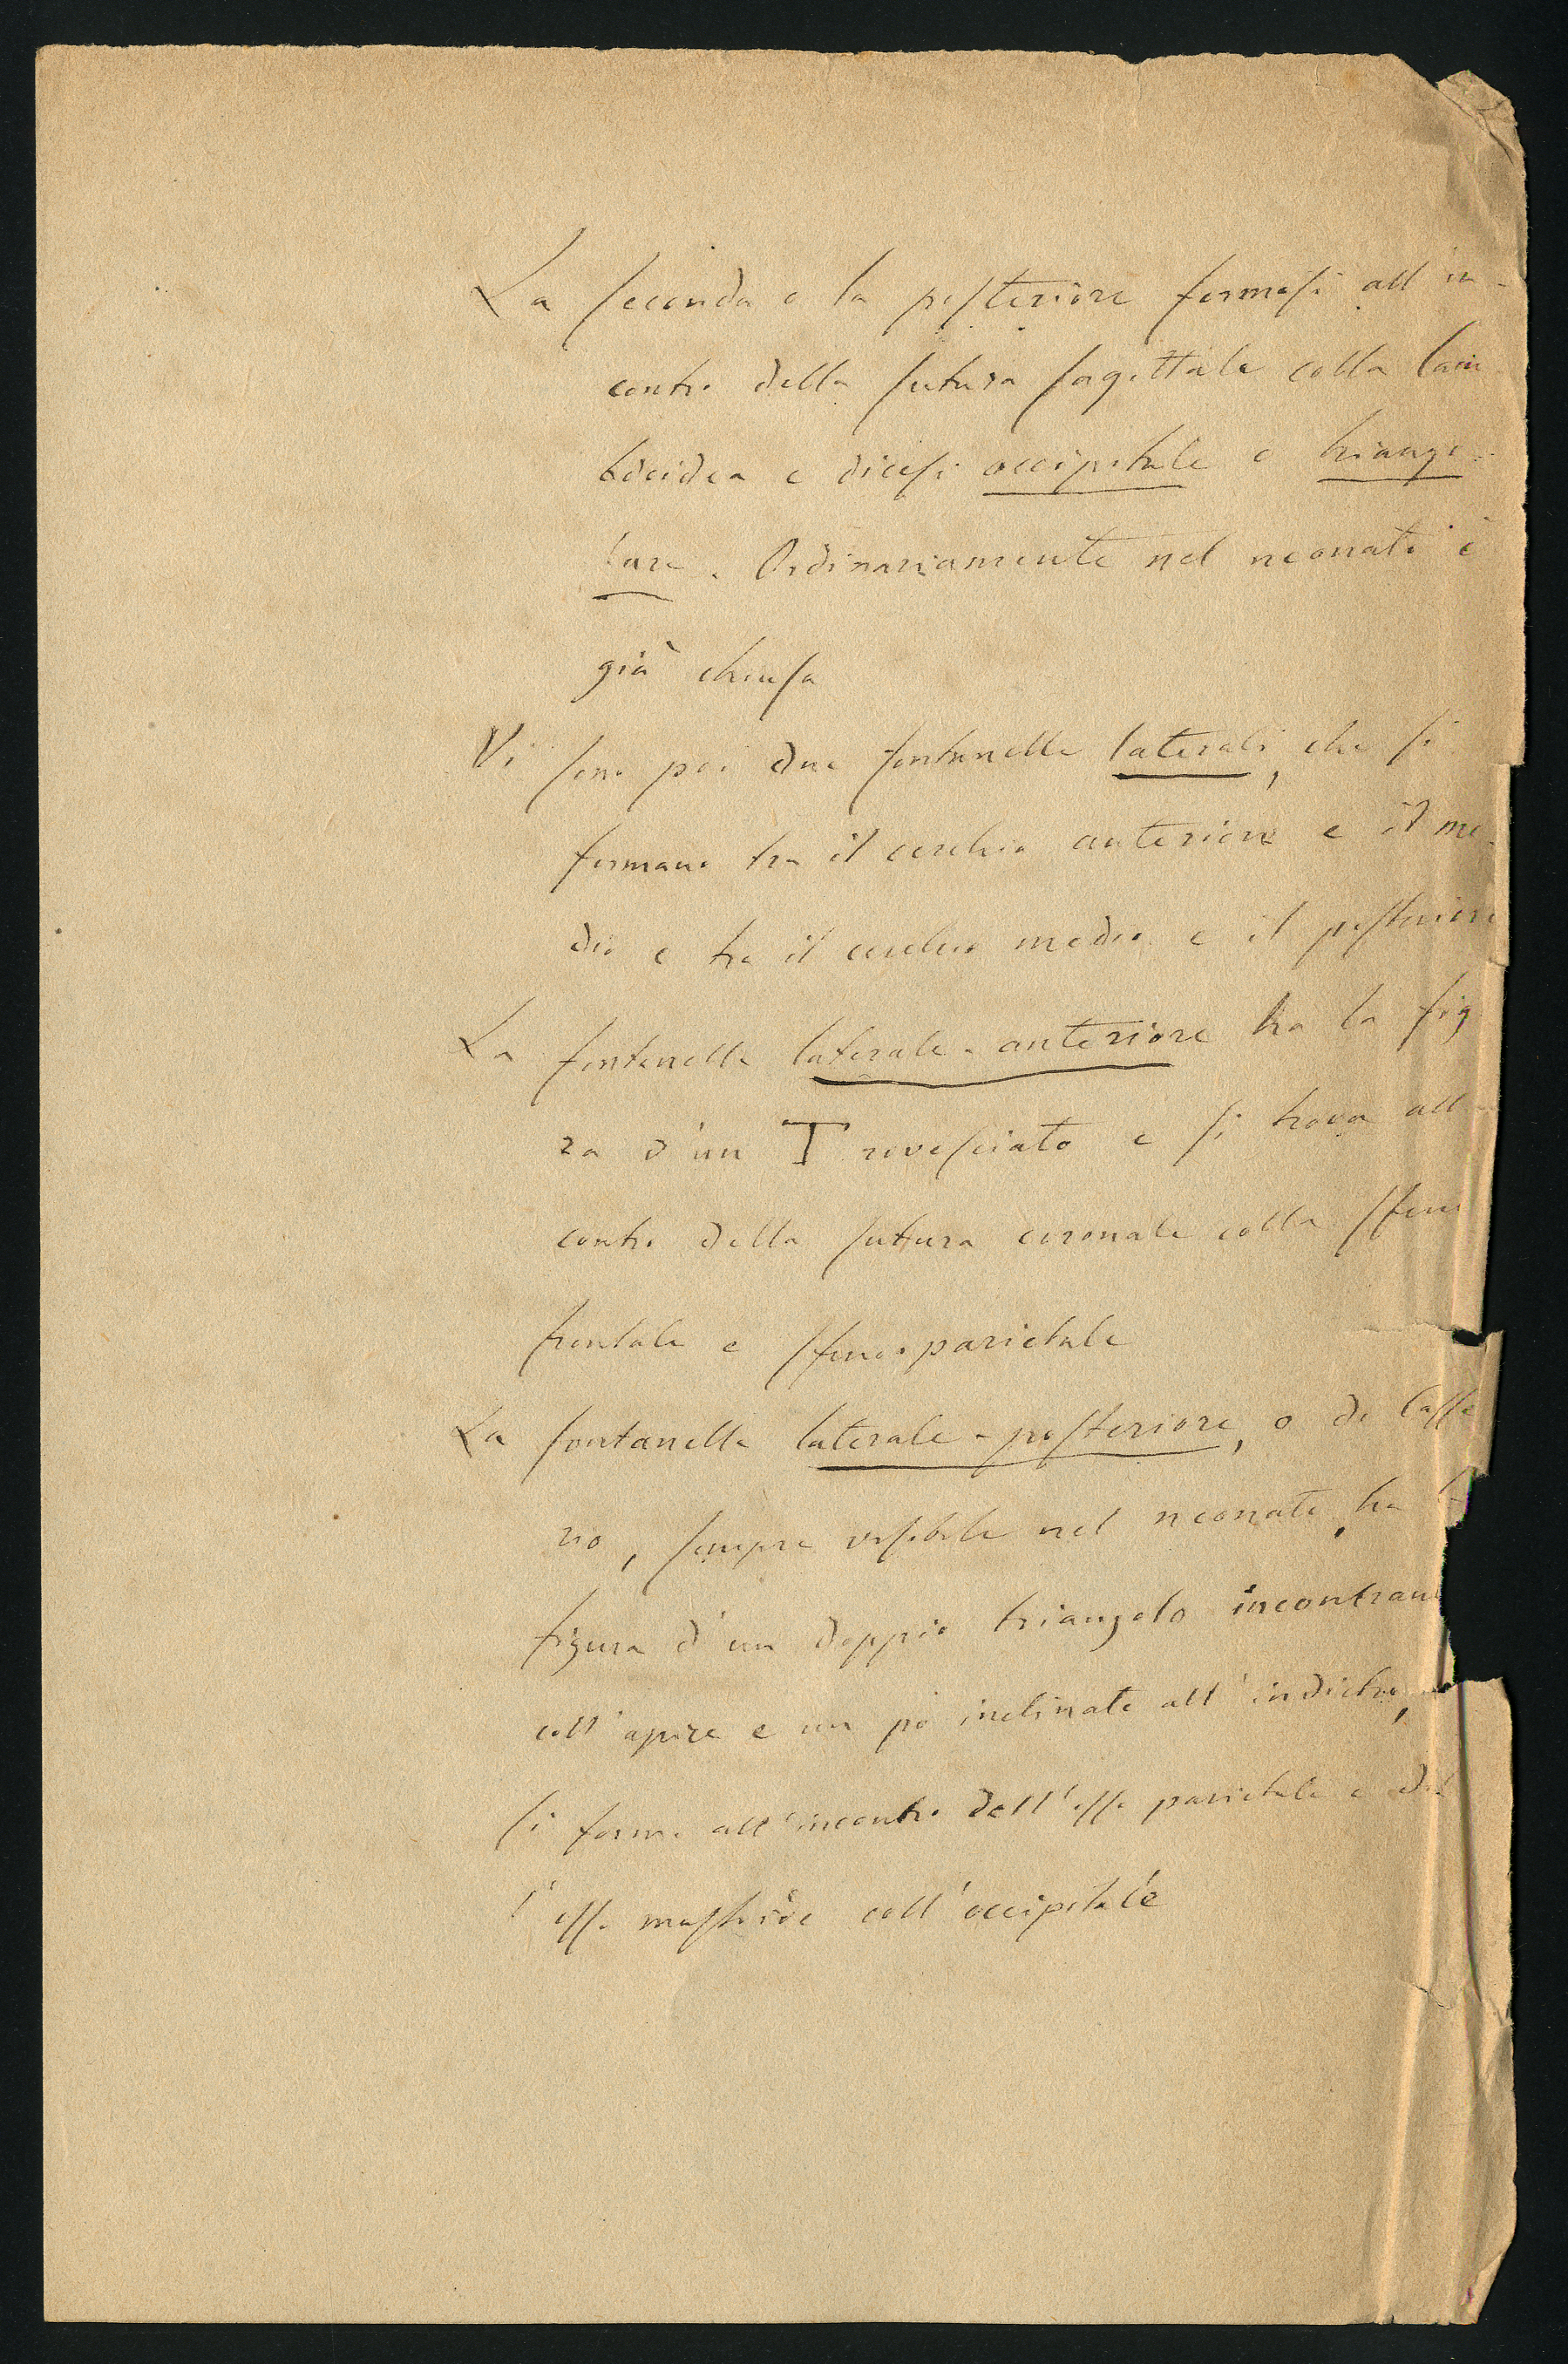 La seconda o la posteriore formasi all'in-
contro della sutura sagittale colla lam
bdoidea e dicesi occipitale o triango-
lare. Ordinariamente nel neonato è
già chiusa
Vi sono poi due fontanelle laterali, che si
formano tra il cerchio anteriore e il me-
dio e tra il cerchio medio e il posteriore
La fontanella laterale-anteriore ha la fig
ra d'un T rovesciato e si trova all
contro della sutura coronale colla sfeno
frontale e sfeno-parietale
La fontanella laterale-posteriore, o di Casse
rio, sempre visibile nel neonato, ha
figura d'un doppio triangolo incontran
coll'apice e un pò inclinato all'indietro,
si forma all'incontro dell'osso parietale e del
l'osso mastoide coll'occipitale